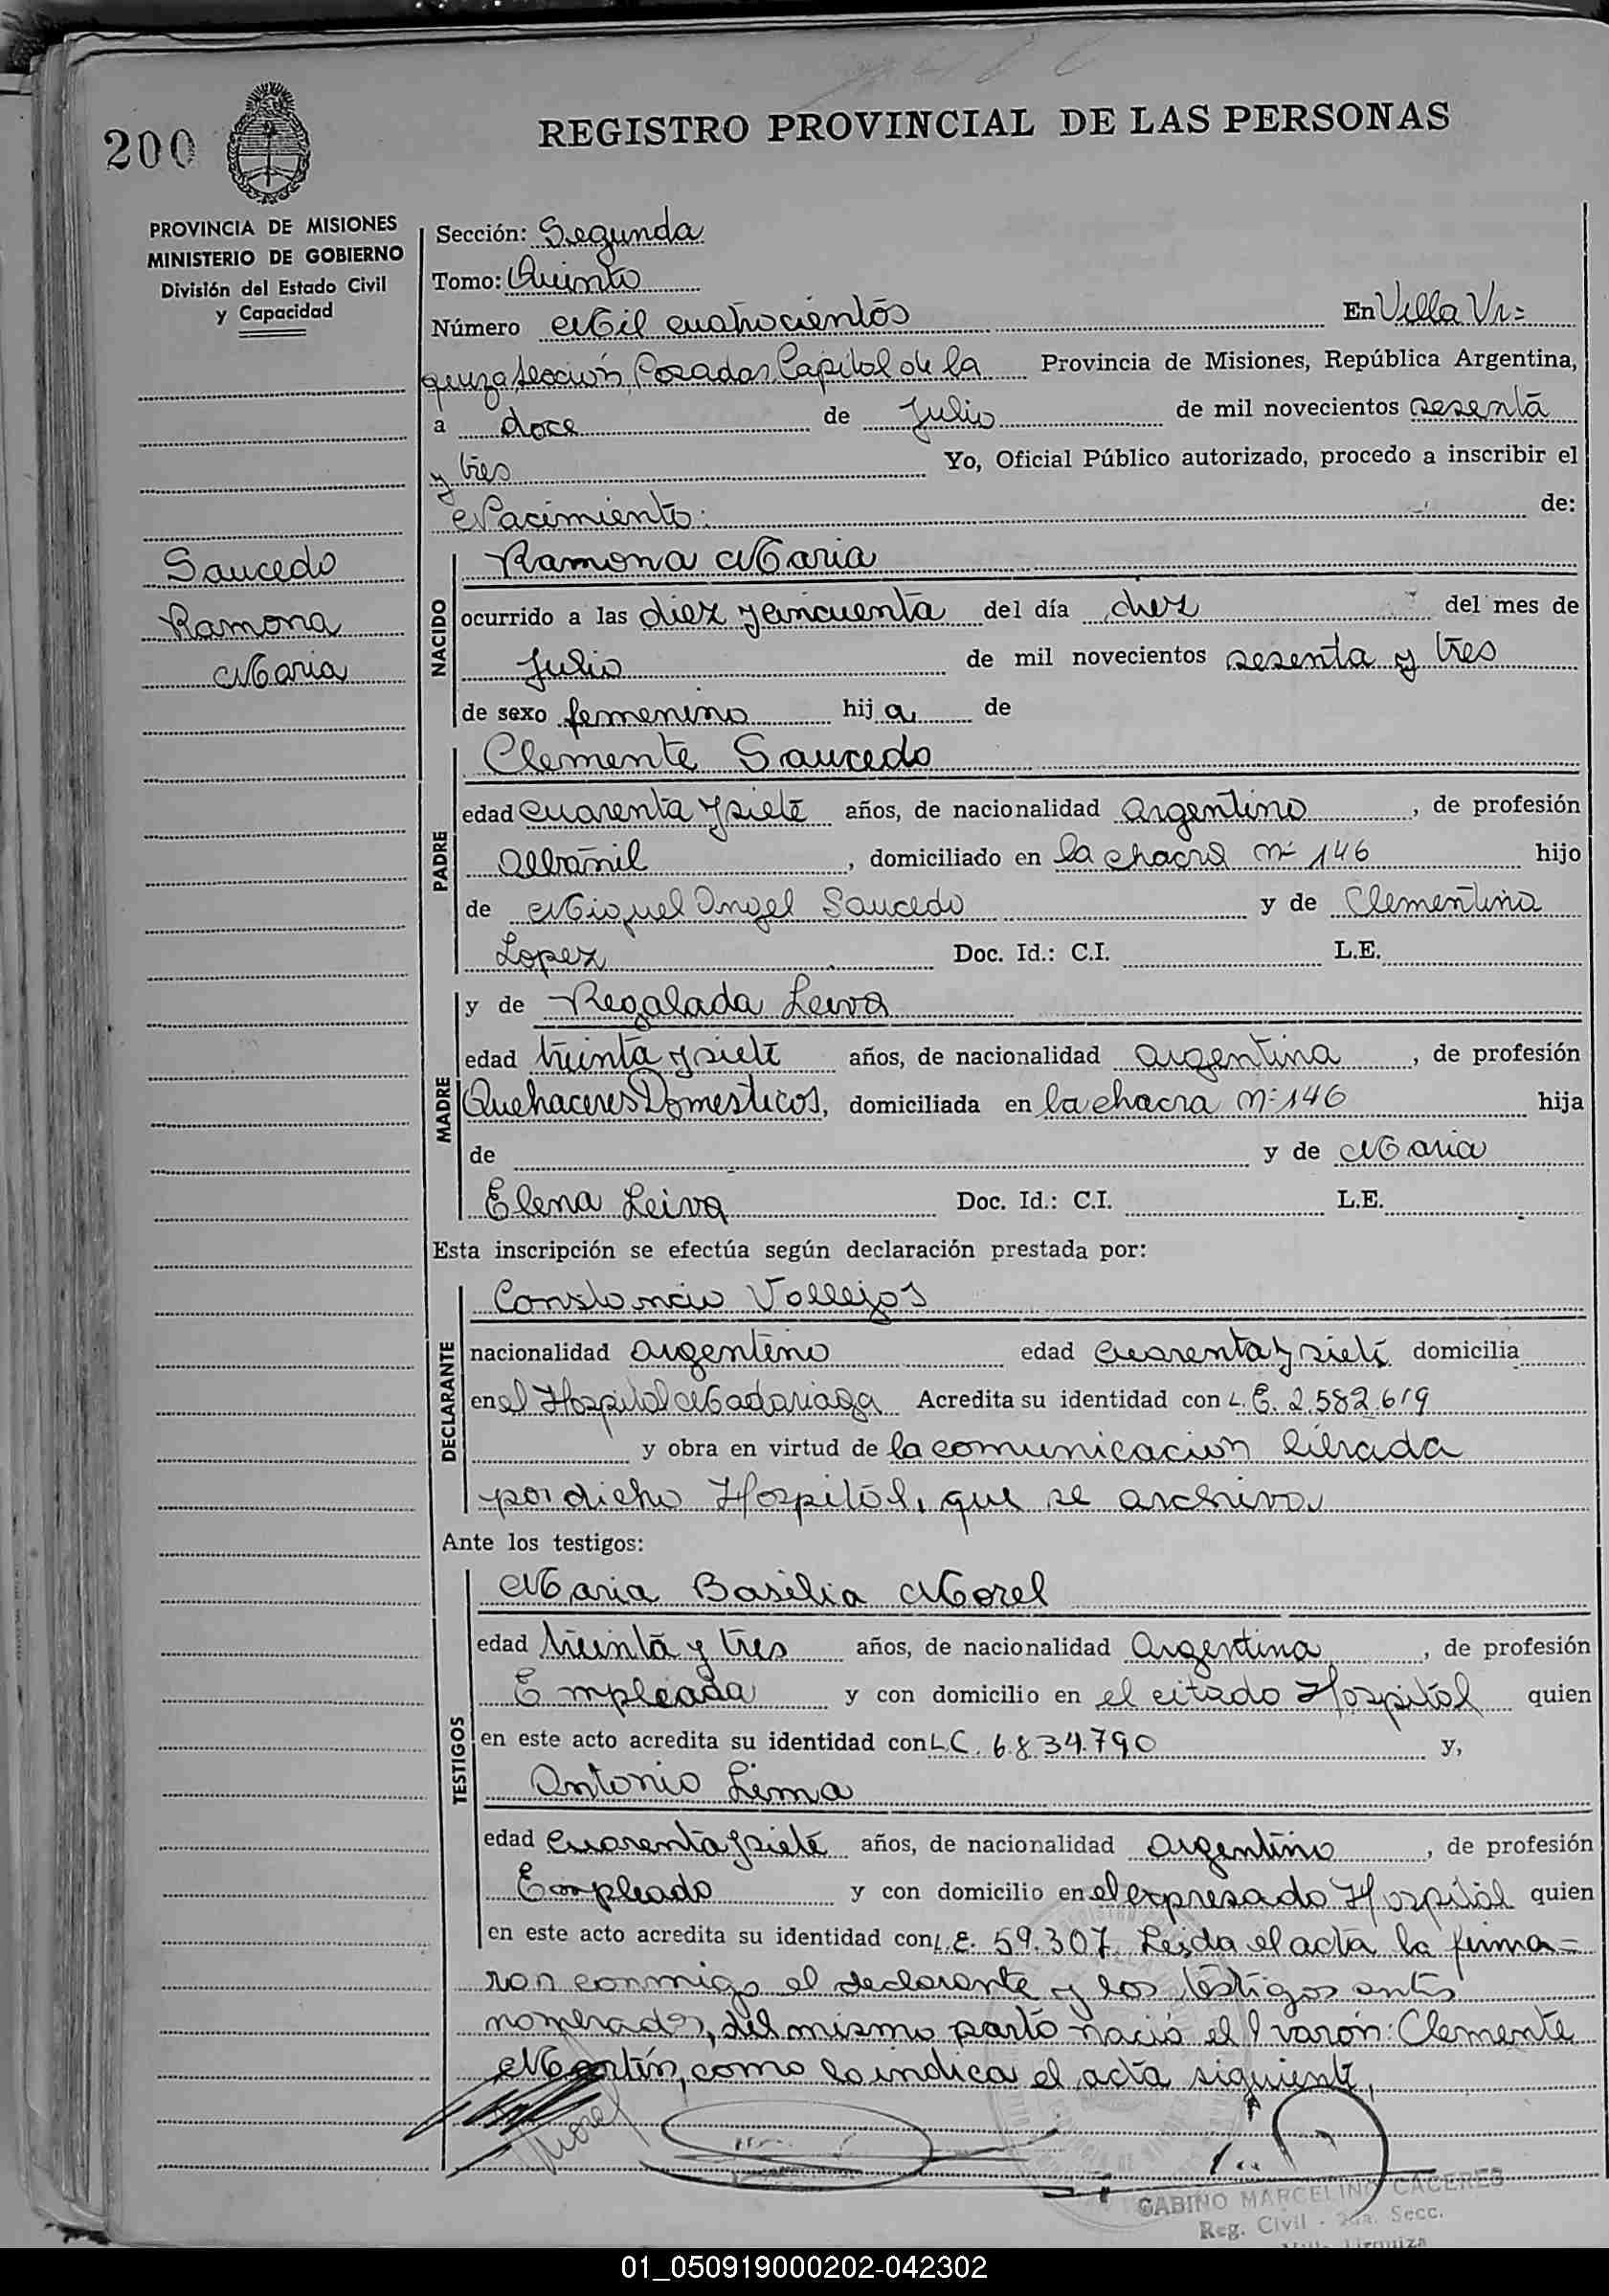 200
REGISTRO PROVINCIAL DE LAS PERSONAS
PROVINCIA DE MISIONES
MINISTERIO DE GOBIERNO
División del Estado Civil
y Capacidad
Saucedo
Ramona
Maria
Sección: Segunda
Tomo: Quinto
Número Mil cuatrocientos En Villa Ur=
quiza sección, Posadas, Capital de la Provincia de Misiones, República Argentina,
a doce de Julio de mil novecientos sesenta
y tres Yo, Oficial Público autorizado, procedo a inscribir el
Nacimiento: de:
NACIDO
Ramona Maria
ocurrido a las diez y cincuenta del día diez del mes de
Julio de mil novecientos sesenta y tres
de sexo femenino hij a de
PADRE
Clemente Saucedo
edad cuarenta y siete años, de nacionalidad argentino, de profesión
Albañil, domiciliado en la chacra nº 146 hijo
de Miguel Angel Saucedo y de Clementina
Lopez Doc. Id.: C.I. L.E.
MADRE
y de Regalada Leiva
edad treinta y siete años, de nacionalidad argentina, de profesión
Quehaceres Domesticos, domiciliada en la chacra nº 146 hija
de y de Maria
Elena Leiva Doc. Id.: C.I. L.E.
Esta inscripción se efectúa según declaración prestada por:
DECLARANTE
Constancio Vallejos
nacionalidad argentino edad cuarenta y siete domicilia
en el Hospital Madariaga Acredita su identidad con L.E. 2.582.619
y obra en virtud de la comunicacion librada
por dicho Hospital, que se archiva
Ante los testigos:
TESTIGOS
Maria Basilia Morel
edad treinta y tres años, de nacionalidad Argentina, de profesión
Empleada y con domicilio en el citado Hospital quien
en este acto acredita su identidad con L.C. 6.834.790 y,
Antonio Lima
edad cuarenta y siete años, de nacionalidad argentino, de profesión
Empleado y con domicilio en el expresado Hospital quien
en este acto acredita su identidad con L.E. 59.307. Leida el acta la firma=
ron conmigo el declarante y los testigos antes
nombrados, del mismo parto nació el varon: Clemente
Martín, como lo indica el acta siguiente,
Morel
GABINO MARCELINO CACERES
Reg. Civil - 2da. Secc.
Villa Urquiza
01_050919000202-042302